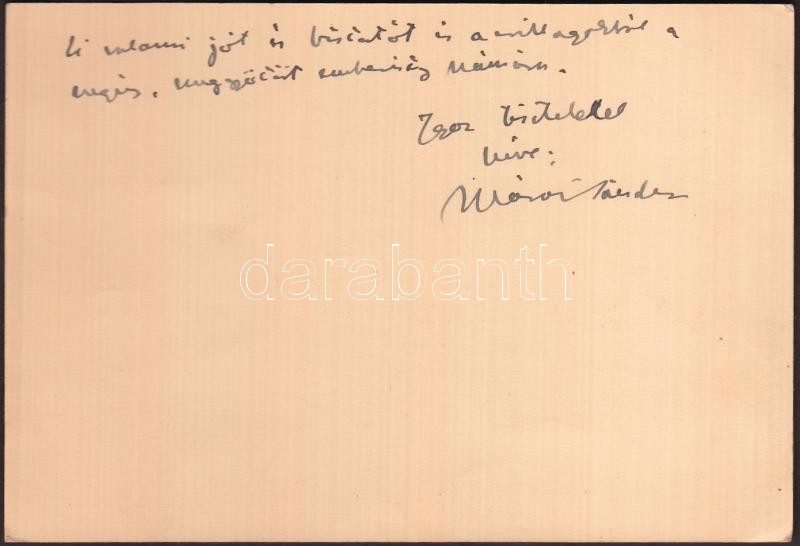 ki valami jót és biztatót is a csillagokból a
szegény, meggyötört emberiség számára.
Igaz tisztelettel
híve:
Márai Sándor
darabanth